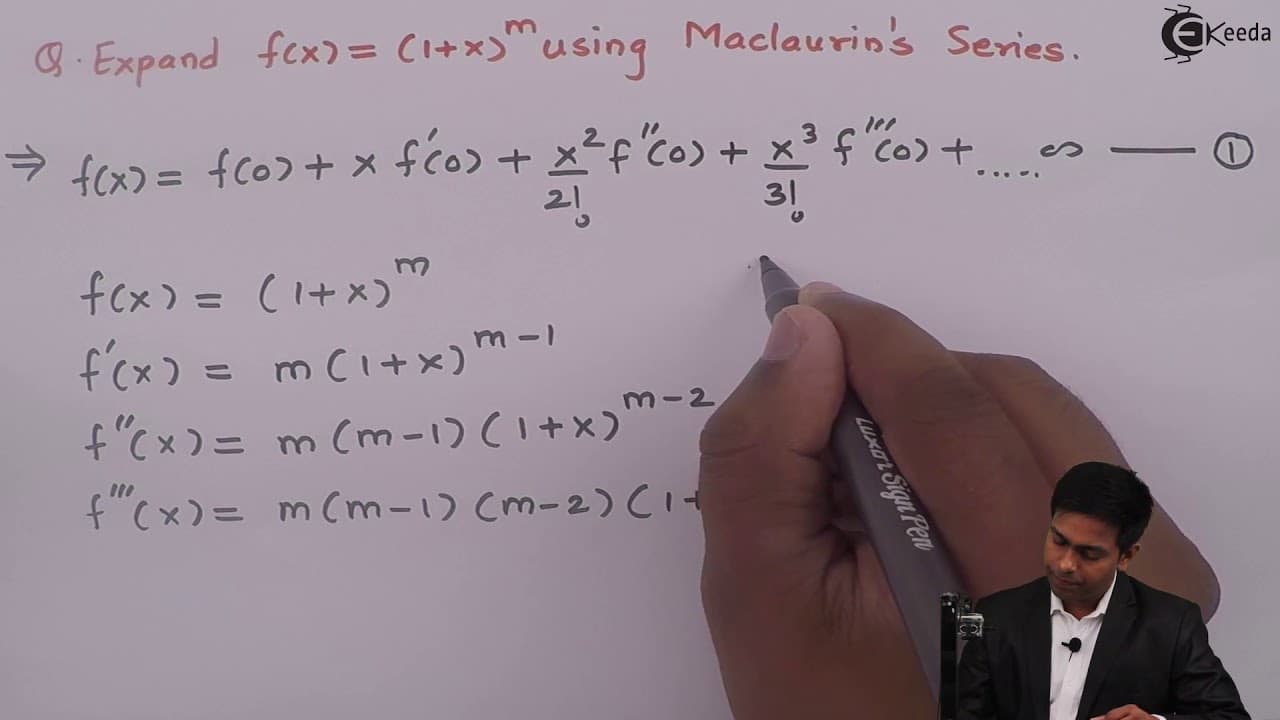 Keeda
Q. Expand f(x) = (1+x)^m using Maclaurin's Series.
⇒ f(x) = f(0) + x f'(0) + x²/2! f''(0) + x³/3! f'''(0) + ..... ∞ — ①
f(x) = (1+x)^m
f'(x) = m(1+x)^(m-1)
f''(x) = m(m-1)(1+x)^(m-2)
f'''(x) = m(m-1)(m-2)(1+
Luxor Sign Pen